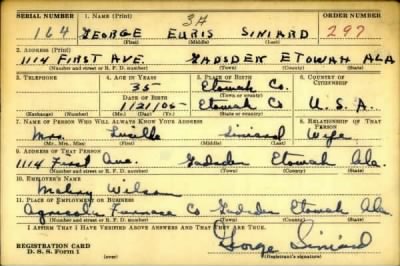 SERIAL NUMBER 1. NAME (Print) 3A ORDER NUMBER
164 GEORGE EURIS SINIARD 297
(First) (Middle) (Last)
2. ADDRESS (Print)
1114 FIRST AVE. GADSDEN ETOWAH ALA
(Number and street or R. F. D. number) (Town) (County) (State)
3. TELEPHONE 4. AGE IN YEARS 5. PLACE OF BIRTH 6. COUNTRY OF CITIZENSHIP
35 Etowah Co.
DATE OF BIRTH (Town or county)
1/21/05 Etowah Co U.S.A.
(Exchange) (Number) (Mo.) (Day) (Yr.) (State or country)
7. NAME OF PERSON WHO WILL ALWAYS KNOW YOUR ADDRESS 8. RELATIONSHIP OF THAT PERSON
Mrs. Lucille Siniard Wife
(Mr., Mrs., Miss) (First) (Middle) (Last)
9. ADDRESS OF THAT PERSON
1114 First Ave. Gadsden Etowah Ala.
(Number and street or R. F. D. number) (Town) (County) (State)
10. EMPLOYER'S NAME
Wilson
11. PLACE OF EMPLOYMENT OR BUSINESS
Furnace Co Gadsden Etowah Ala.
(Number and street or R. F. D. number) (Town) (County) (State)
I AFFIRM THAT I HAVE VERIFIED ABOVE ANSWERS AND THAT THEY ARE TRUE.
REGISTRATION CARD George Siniard
D. S. S. Form 1 (Registrant's signature)